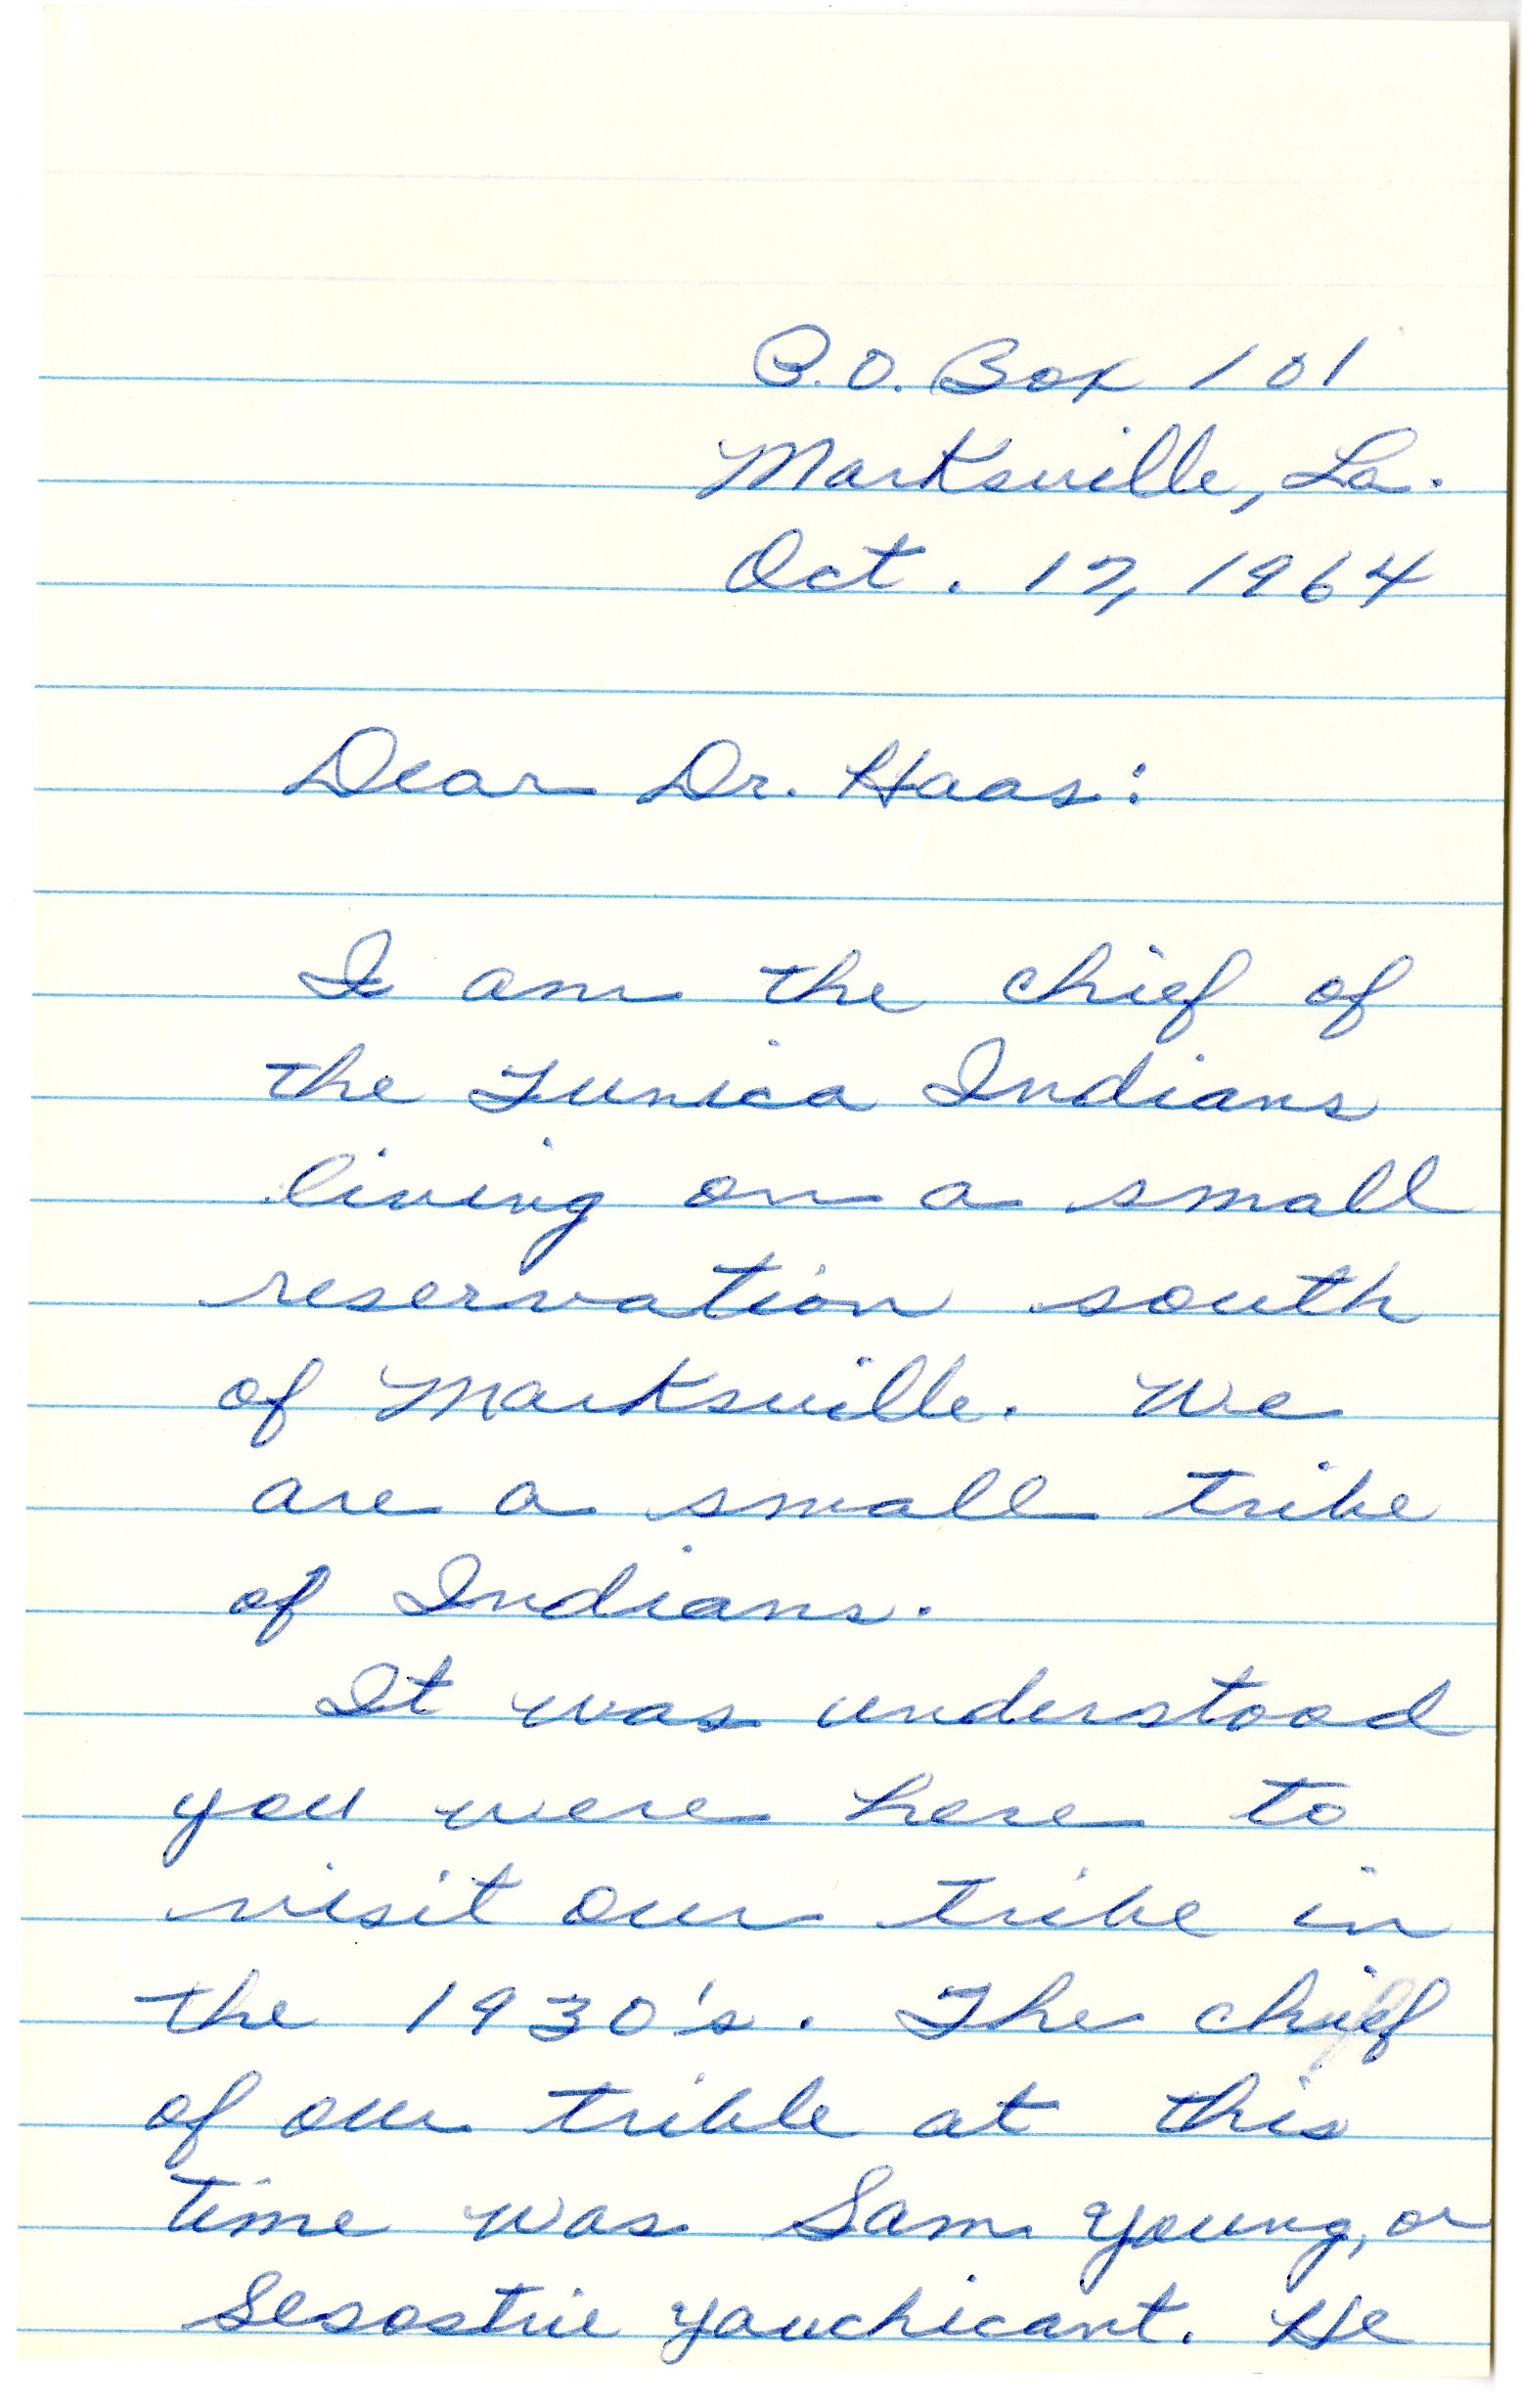 P.O. Box 101
Marksville, La.
Oct. 17, 1964
Dear Dr. Haas:
I am the chief of
the Tunica Indians
living on a small
reservation south
of Marksville. We
are a small tribe
of Indians.
It was understood
you were here to
visit our tribe in
the 1930's. The chief
of our trible at this
time was Sam Young, or
Sesostrie Yauchicant. He